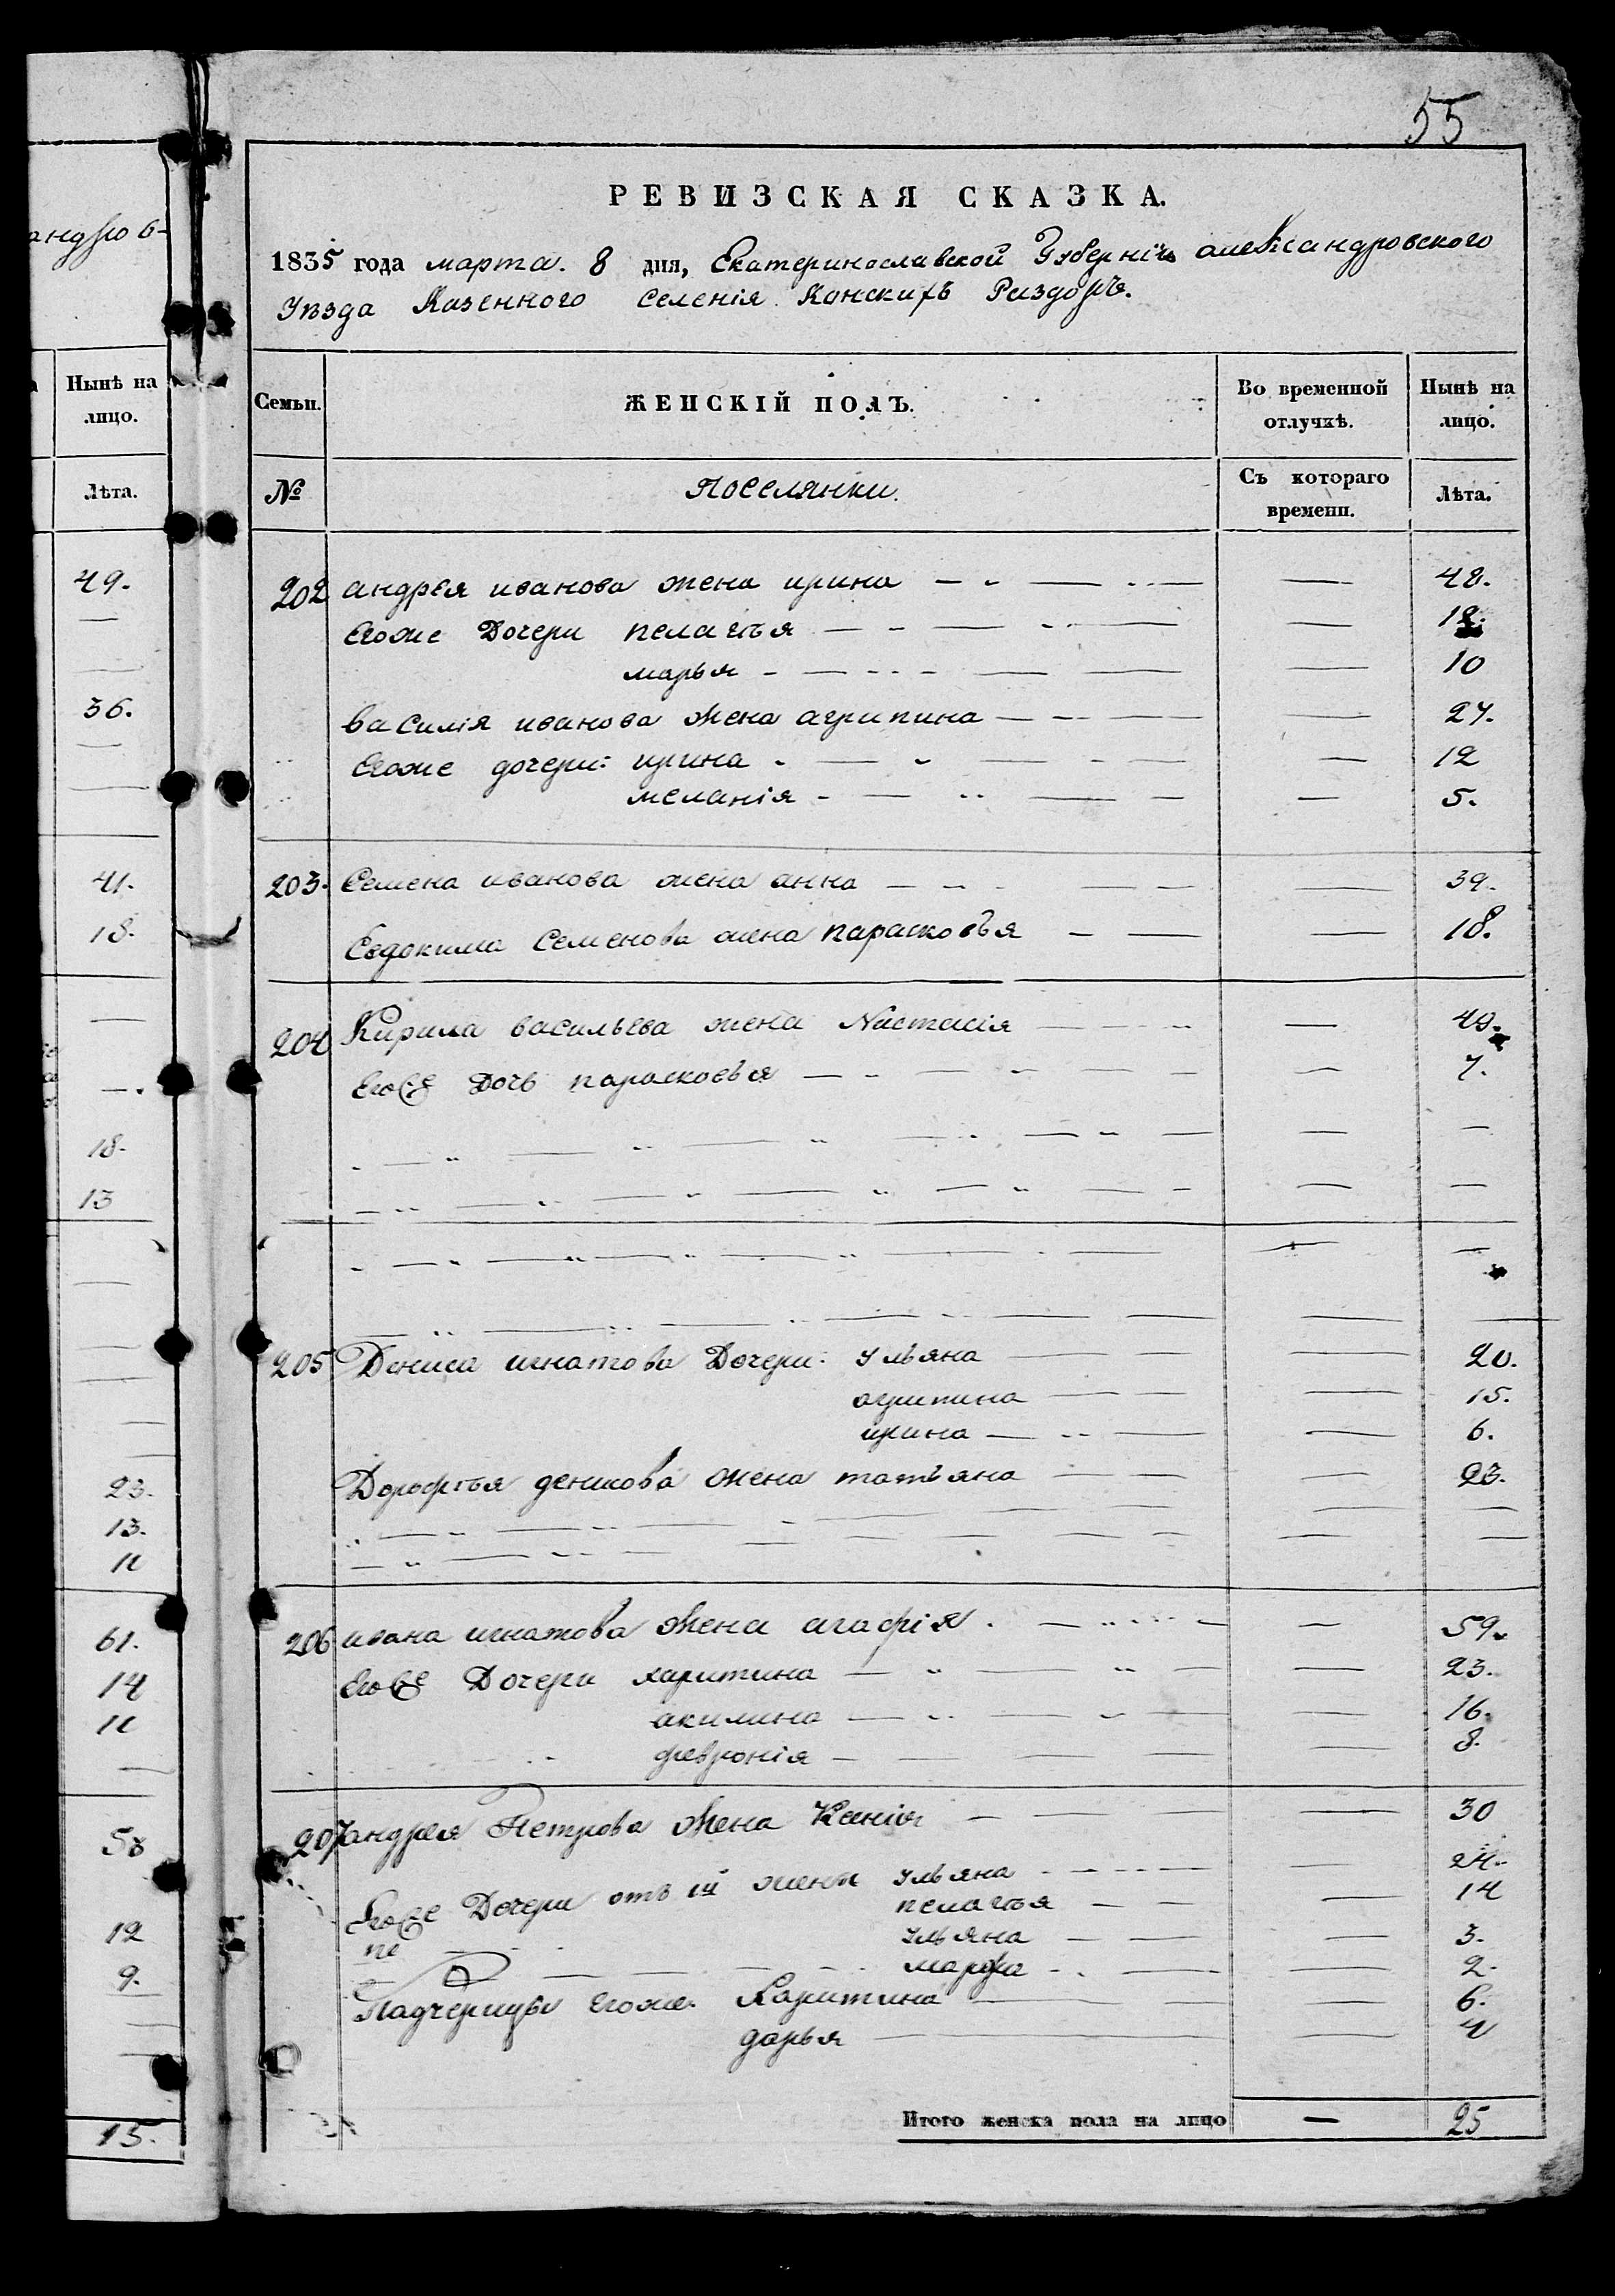 55
РЕВИЗСКАЯ СКАЗКА.
1835 года марта. 8 дня, Екатеринославской Губерніи александровского
Уѣзда Казенного Селенія Конскихъ Раздоръ.
андров-
Нынѣ на лицо.
Лѣта.
49.
36.
41.
18.
18.
13
23.
13.
11
61.
14
11
58
12
9.
15.
Семьи. ЖЕНСКІЙ ПОЛЪ. Во временной отлучкѣ. Нынѣ на лицо.
№ Поселянки. Съ котораго времени. Лѣта.
202 андрея иванова жена ирина 48.
Егоже Дочери пелагѣя 18.
марья 10
василія иванова жена агрипина 27.
Егоже дочери: ирина 12
меланія 5.
203. Семена иванова жена анна 39.
Евдокима Семенова жена парасковъя 18.
204 Кирила васильева жена Настасія 49.
Егоже Дочь парасковья 7.
205 Дениса игнатова Дочери: Ульяна 20.
агрипина 15.
ирина 6.
Дорофѣя денисова жена татьяна 23.
206 ивана игнатова жена агафія 59.
Егоже Дочери харитина 23.
акилина 16.
февронія 8.
207 андрея Петрова жена Ксенія 30
Егоже Дочери отъ 1й жены Ульяна 24.
пелагѣя 14
Ульяна 3.
марфа 2.
Падчерицы егоже. Харитина 6.
дарья 4
Итого женска пола на лицо — 25